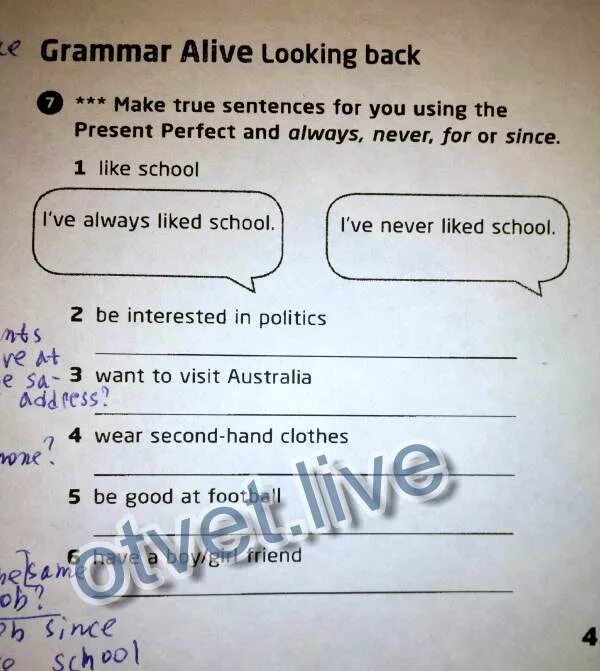 Grammar Alive Looking back
7 *** Make true sentences for you using the
Present Perfect and always, never, for or since.
1 like school
I've always liked school.
I've never liked school.
2 be interested in politics
3 want to visit Australia
4 wear second-hand clothes
5 be good at football
6 have a boy/girl friend
address?
same
since
school
otvet.live
4